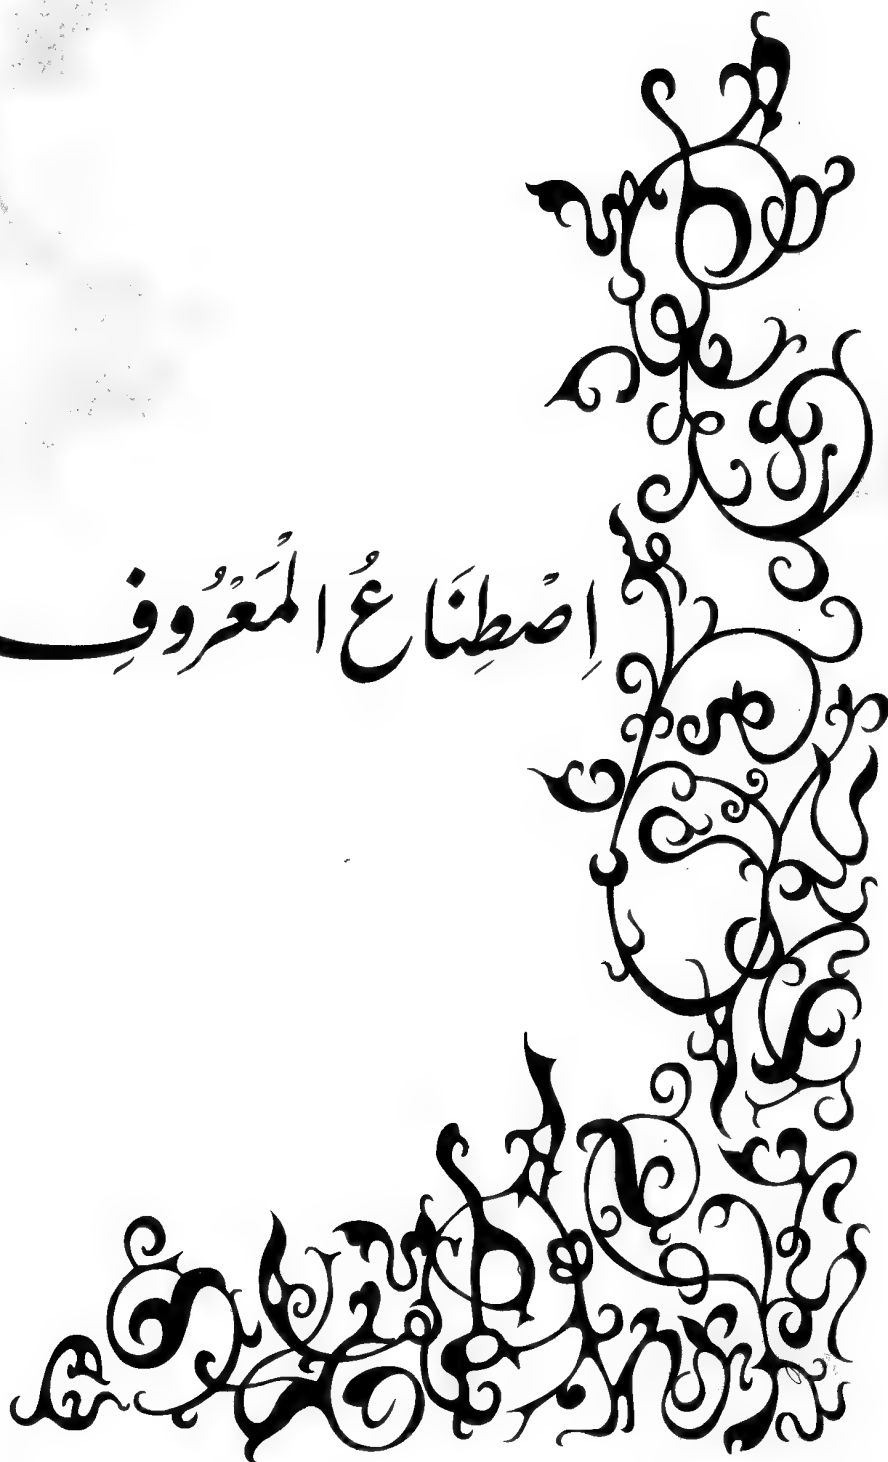 اِصْطِنَاعُ الْمَعْرُوفِ